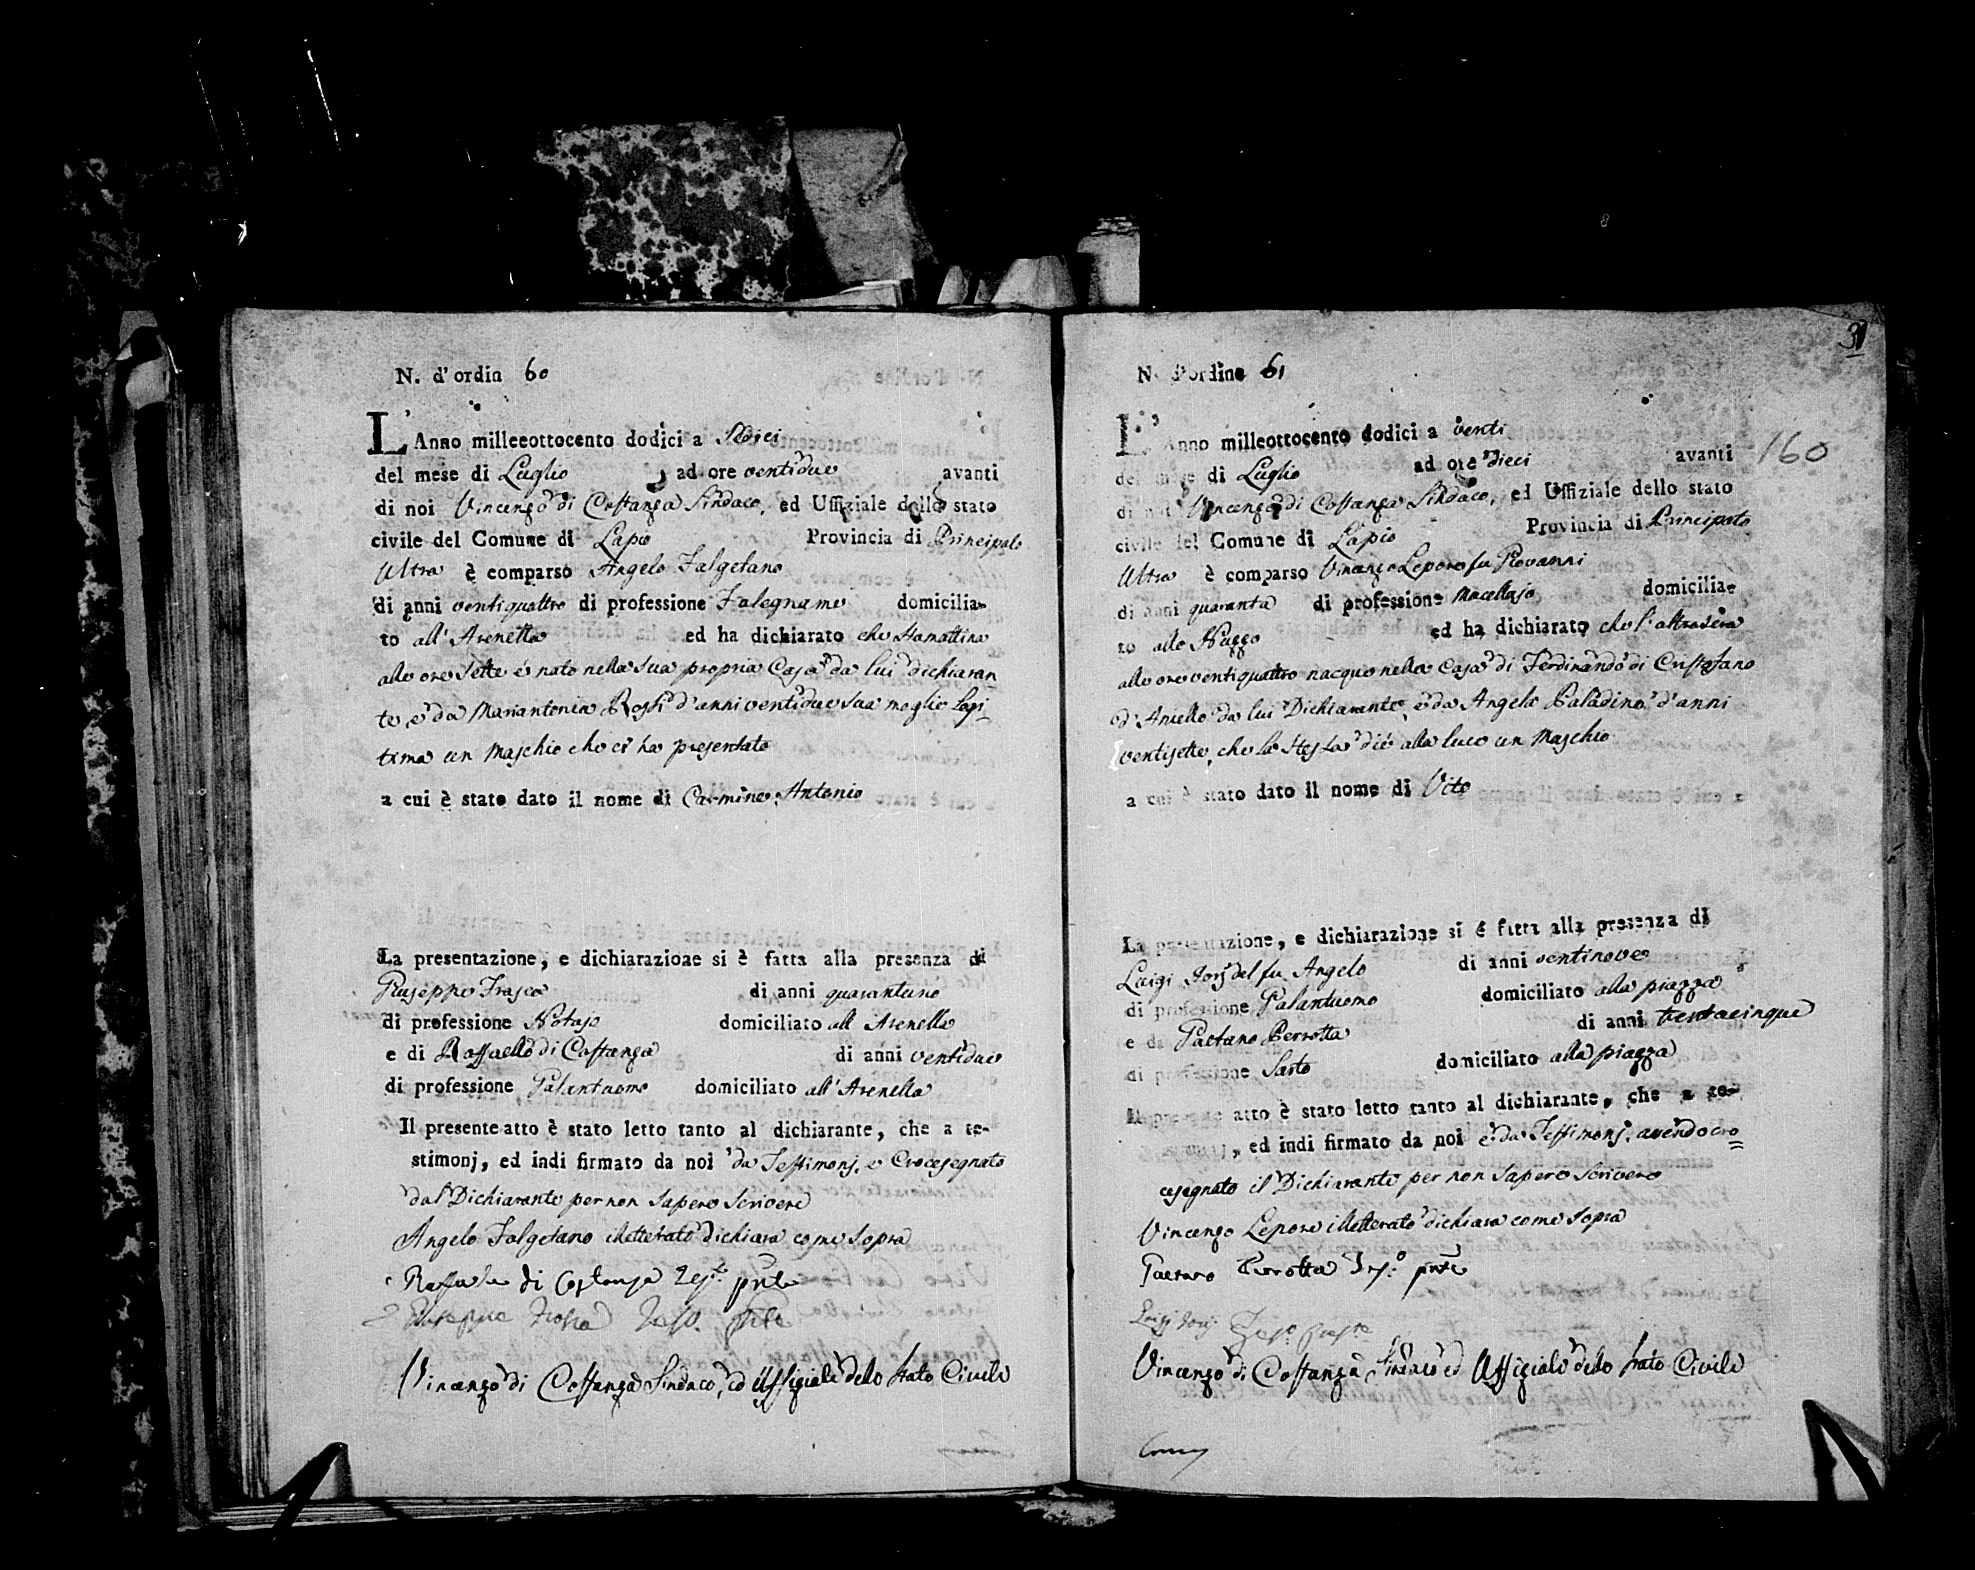 N. d'ordin 60
L'Anno milleeottocento dodici a Sedici
del mese di Luglio ad ore ventidue avanti
di noi Vincenzo di Costanza Sindaco, ed Uffiziale dello stato
civile del Comune di Lapio Provincia di Principato
Ultra è comparso Angelo Falgetano
di anni ventiquattro di professione Falegname domicilia-
to all' Arenella ed ha dichiarato che stamattina
alle ore sette è nato nella sua propria Casa da lui dichiaran
te, e da Mariantonia Rossi d'anni ventidue sua moglie Legi
tima un Maschio che ci ha presentato
a cui è stato dato il nome di Carmine Antonio
La presentazione, e dichiarazioae si è fatta alla presenza di
Giuseppe Frasca di anni quarantuno
di professione Notajo domiciliato all' Arenella
e di Raffaello di Costanza di anni ventidue
di professione Galantuomo domiciliato all' Arenella
Il presente atto è stato letto tanto al dichiarante, che a te-
stimonj, ed indi firmato da noi da Testimonj, e Crocesegnato
dal Dichiarante per non sapere scrivere
Angelo Falgetano illetterato dichiara come sopra
Raffaele di Costanza
Giuseppe Frasca
Vincenzo di Costanza Sindaco, ed Uffiziale dello stato Civile
31
N. d'ordine 61
160
L'Anno milleottocento dodici a venti
del mese di Luglio ad ore dieci avanti
di noi Vincenzo di Costanza Sindaco, ed Uffiziale dello stato
civile del Comune di Lapio Provincia di Principato
Ultra è comparso Vincenzo Lepore fu Giovanni
di anni quaranta di professione Macellajo domicilia-
to allo ed ha dichiarato che l'altrasera
alle ore ventiquattro nacque nella Casa di Ferdinando di Cristofano
d'Aniello da lui Dichiarante, e da Angela Paladino d'anni
ventisette, che la stessa diè alla luce un Maschio
a cui è stato dato il nome di Vito
La presentazione, e dichiarazione si è fatta alla presenza di
Luigi del fu Angelo di anni ventinove
di professione Galantuomo domiciliato alla piazza
e da Gaetano Perrotta di anni trentacinque
di professione Sarto domiciliato alla piazza
Il presente atto è stato letto tanto al dichiarante, che a te-
stimonj, ed indi firmato da noi e da Testimonj, avendo cro
cesegnato il Dichiarante per non sapere scrivere
Vincenzo Lepore illetterato dichiara come sopra
Gaetano Perrotta
Luigi
Vincenzo di Costanza Sindaco ed Uffiziale dello stato Civile